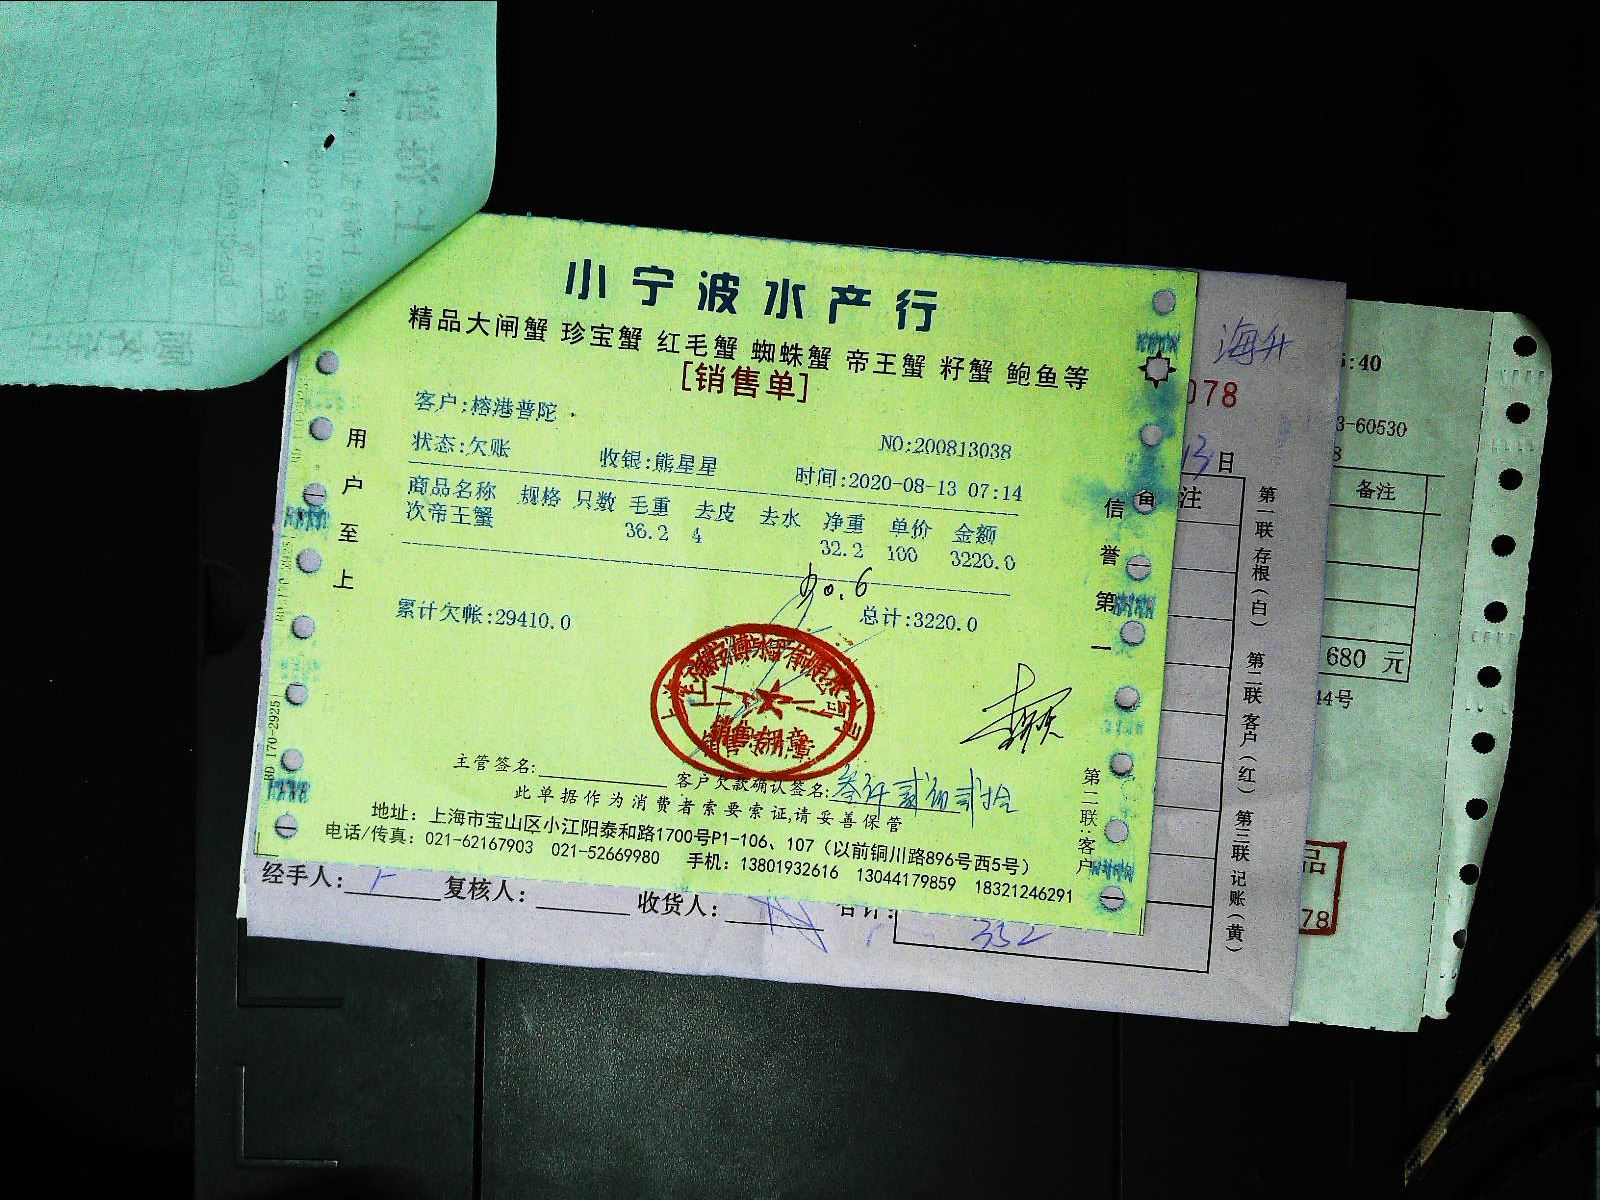 小宁波水产行
精品大闸蟹 珍宝蟹 红毛蟹 蜘蛛蟹 帝王蟹 籽蟹 鲍鱼等
[销售单]
客户:榕港普陀
NO:200813038
状态:欠账 收银:熊星星 时间:2020-08-13 07:14
商品名称 规格 只数 毛重 去皮 去水 净重 单价 金额
次帝王蟹 36.2 4 32.2 100 3220.0
90.6
累计欠帐:29410.0 总计:3220.0
用户至上
信誉第一
销售专用章
主管签名: 客户欠款确认签名:叁仟贰佰贰拾
此单据作为消费者索要索证,请妥善保管
地址: 上海市宝山区小江阳泰和路1700号P1-106、107（以前铜川路896号西5号）
电话/传真: 021-62167903 021-52669980 手机: 13801932616 13044179859 18321246291
第二联:客户
170-2925
海升
078
13日
备注
第一联 存根（白） 第二联 客户（红） 第三联 记账（黄）
经手人: 复核人: 收货人: 合计:
332
5:40
3-60530
8
备注
680 元
44号
品
78